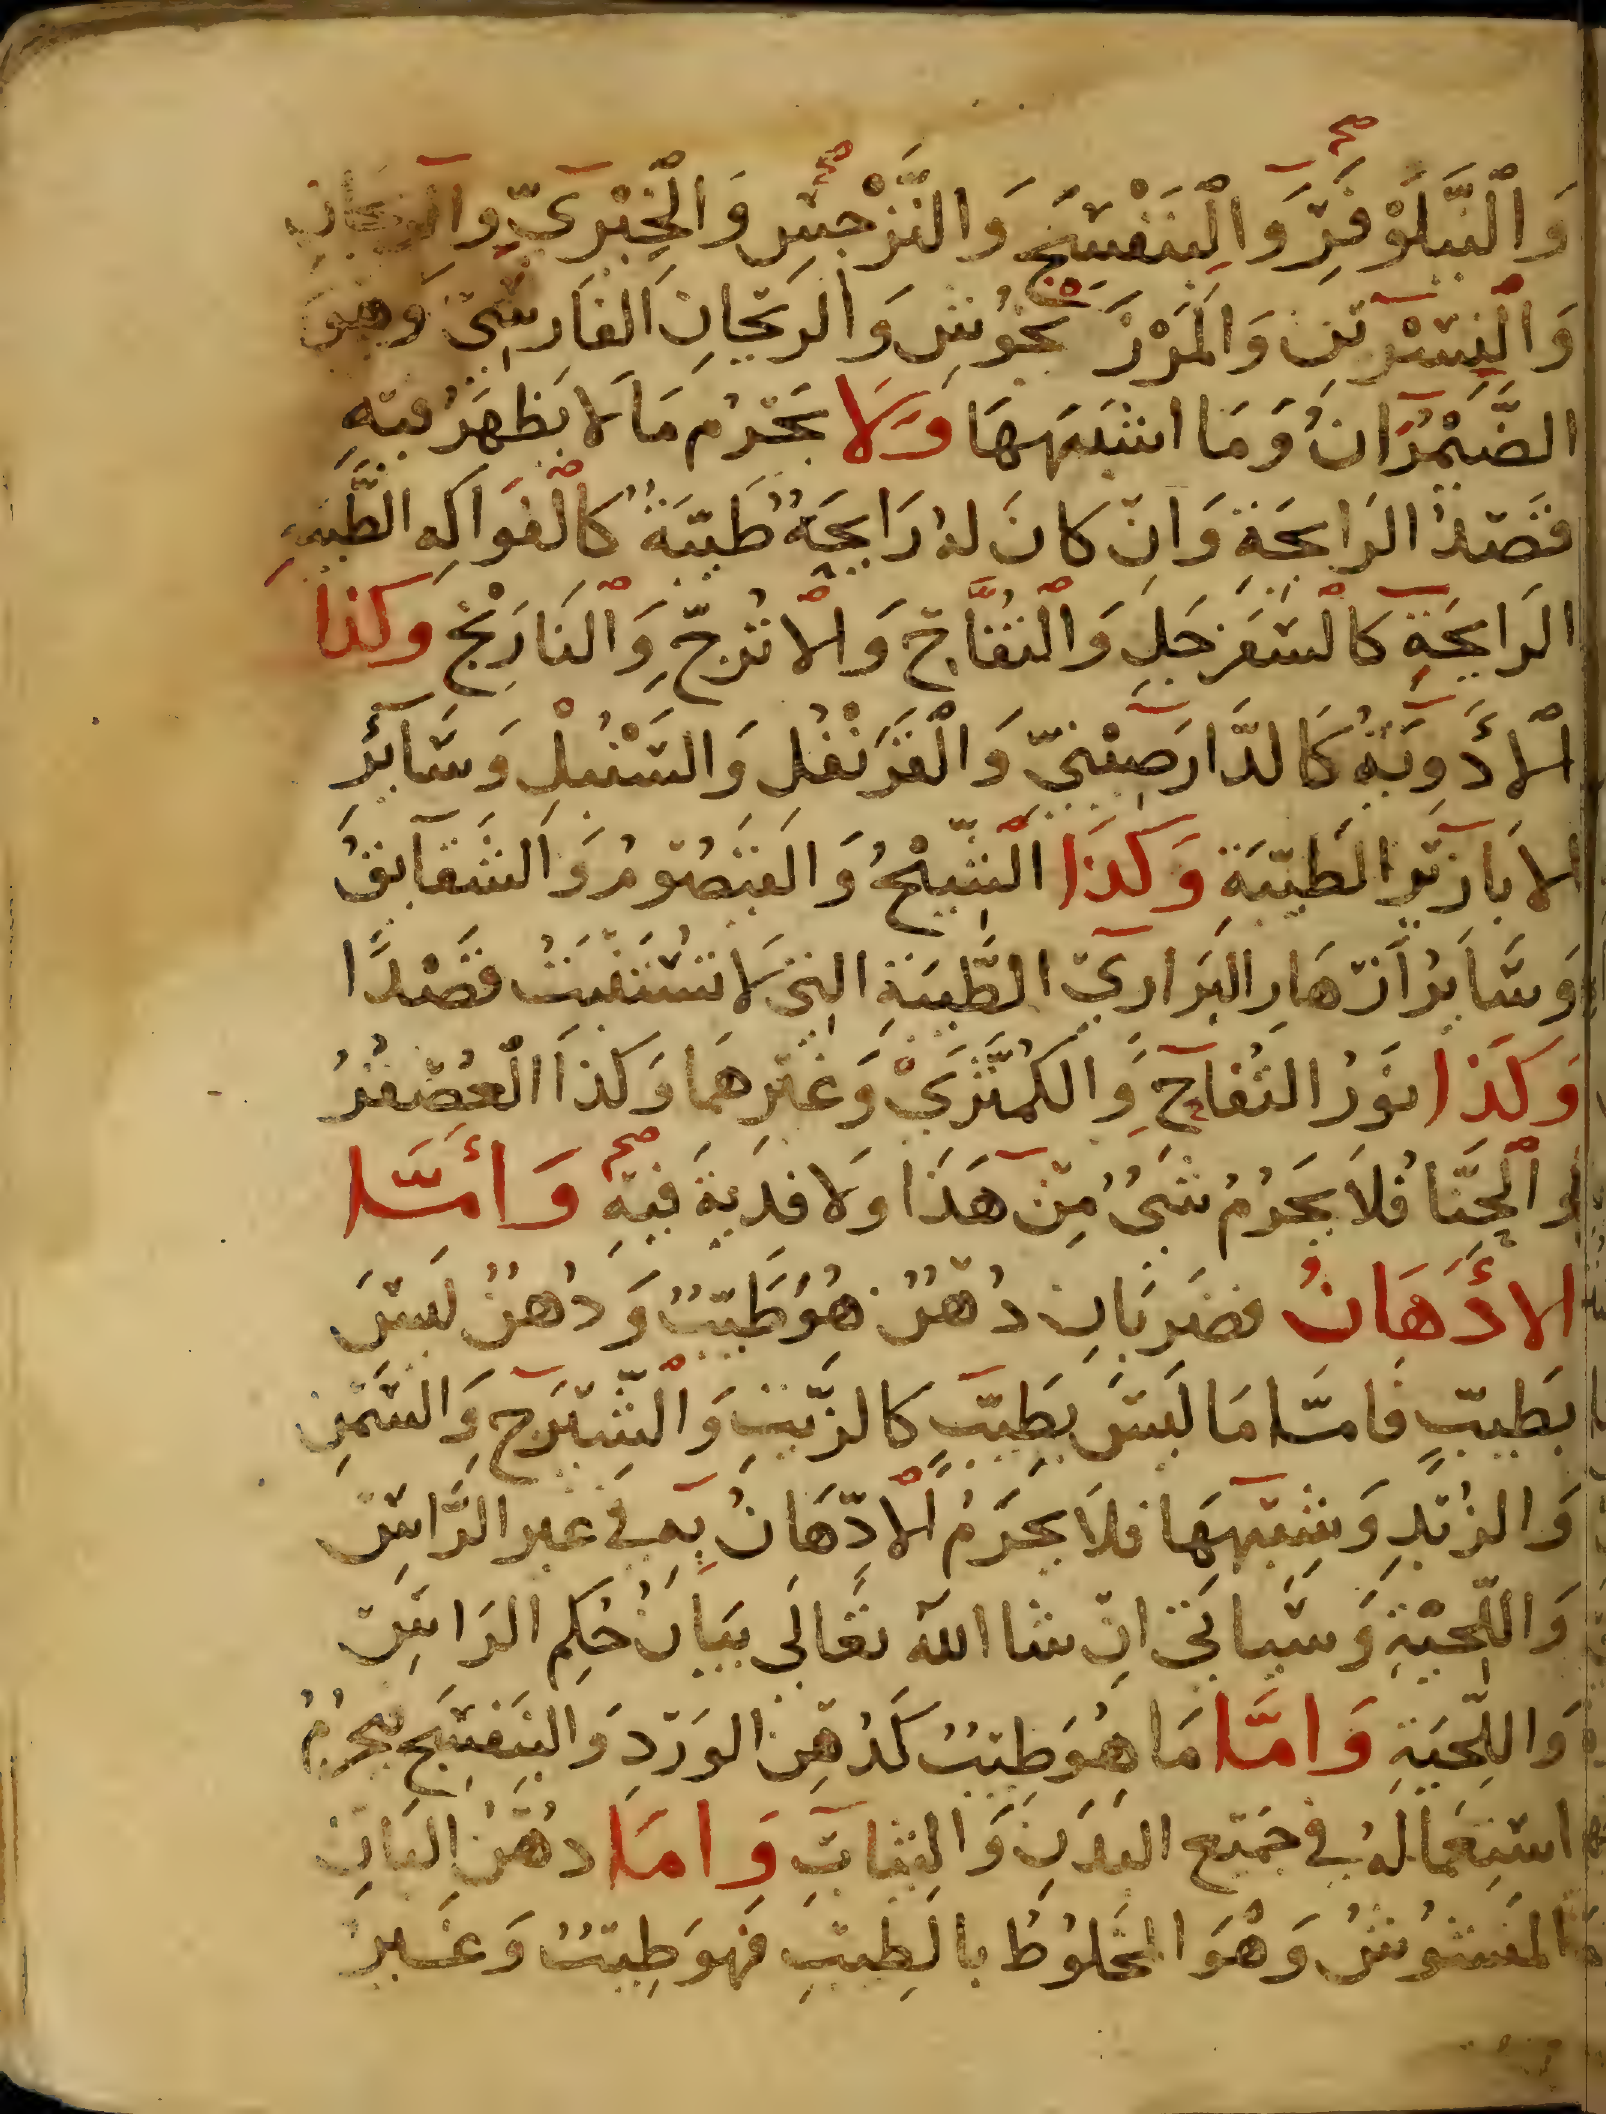 وَالنَّيْلَوْفَرِ وَالْبَنَفْسَجِ وَالنَّرْجِسِ وَالْخِيْرِيِّ وَالرَّيْحَانِ
وَالنِّسْرِيْنِ وَالْمَرْزَنْجُوْشِ وَالرَيْحَانِ الفَارِسِيِّ وَهُوَ
الضَّيْمُرَانُ وَمَا اشْبَهَهَا وَلَا يَحْرُمُ مَا لَا يَظْهَرُ فِيْهِ
قَصْدُ الرَايِحَةِ وَاِنْ كَانَ لهُ رَايِحَةٌ طَيِّبَةٌ كَالْفَوَاكِهِ الطَّيِّبَةِ
الرَايِحَةِ كَالسَّفَرْجَلِ وَالْتُفَّاحِ وَالْاتْرُجِّ وَالْنَارَنْجِ وَكَذَا
الْأَدْوِيَةُ كَالدَّارَصِيْنِيِّ وَالْقَرَنْفُلِ وَالسُّنْبُلِ وَسَآئِرِ
الاَبَازِيْرِ الطَيِّبَةِ وَكَذَا الشِّيْحُ وَالقَيْصُوْمُ وَالشَقَآيِقُ
وَسَايِرُ اَزْهَارِ البَرَارِيْ الطَّيِّبَةِ التِيْ لَا تُسْتَنْبَتُ قَصْدًا
وَكَذَا نَوْرُ التُفَاحِ وَالكُمَّثْرَىْ وَغَيْرِهِمَا وَكَذَا الْعُصْفُرُ
وَالْحِنَّا فَلَا يَحْرُمُ شَيْءٌ مِنْ هَذَا وَلَا فِدْيَةَ فِيْهِ وَأَمَّا
الأَدْهَانُ فَضَرْبَانِ دُهْنٌ هُوَ طِيْبٌ وَدُهْنٌ لَيْسَ
بِطِيْبٍ فَامَّا مَا لَيْسَ بِطِيْبٍ كَالزَيْتِ وَالْشَّيْرَجِ وَالسَّمْنِ
وَالزُبْدِ وَشِبْهِهَا فَلَا يَحْرُمُ الْاِدِّهَانُ بِهِ فِي غير الرَّاسِ
وَاللِّحْيَةِ وَسَيَاتِيْ اِنْ شَا اللّٰه تَعَالَى بَيَانُ حُكْمِ الرَاسِ
وَاللِحْيَةِ وَامَّا مَا هُوَ طِيْبٌ كَدُهْنِ الوَرْدِ وَالبَنَفْسَجِ فيَحْرُمُ
اسْتِعْمَالُهُ فِي جَمِيْع البَدَنِ وَالثِيَابِ وَامَا دُهْنُ البَانِ
المَنْشُوْشُ وَهُوَ المَخْلُوْطُ بالطِيْبِ فَهُوَ طِيْبٌ وَغَيْرُ